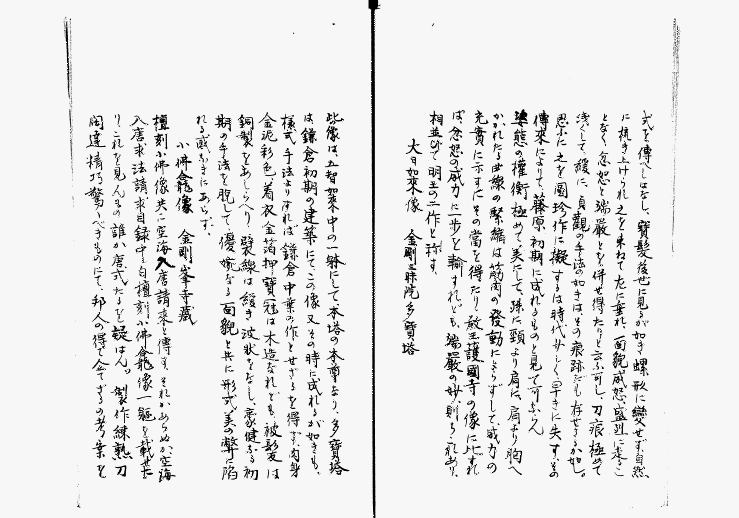 式を傳へしはなし、寶髮後世に見るが如き螺形に變せず、自然
に梳き上げられ之を束ねて左に垂れ、面貌威怒盛烈に走るこ
となく忿怒と端嚴とを併せ得たりと云ふ可し、刀痕極めて
浅くして緩に、貞觀の手法の如きはその痕跡だも存せざるが如し。
思ふに之を圓珍作に擬するは時代少しく早きに失す、その
傳來によりて、藤原初期に成れるものと見て可ならん
姿態の權衡極めて美にして、殊に頸より肩に、肩より胸へ
かかれたる曲線の緊縮は筋肉の發動によらずして威力の
充實に示すにその當を得たり、敎王護國寺の像に比すれ
ば忿怒の威力に一歩を輸すれども、端嚴の妙、則ちこれあり、
相並びて明王の二作と称す。
大日如來像 金剛三昧院多寶塔
此像は五智如來中の一躰にして、本塔の本尊なり、多寶塔
は鎌倉初期の建築にてこの像又その時に成れるが如きも、
樣式手法よりすれば鎌倉中葉の作とせざるを得ず、肉身
金泥彩色、着衣金箔押寶冠は木造なれども、被髮は
銅製をあしらへり、襞線は緩き波状をなし、豪健なる初
期の手法を脱して優婉なる面貌と共に形式美の弊に陥
れる感なきにあらず。
小佛龕像 金剛峯寺蔵
檀刻小佛像共に空海入唐請來と傳ふ、それかあらぬか空海
入唐求法請求目録中に白檀刻小佛龕像一軀を載せた
り、これを見んもの誰か唐式たるを疑はん。製作練熟刀
闊達精巧驚くべきものにて、邦人の得て企てざるの考案を